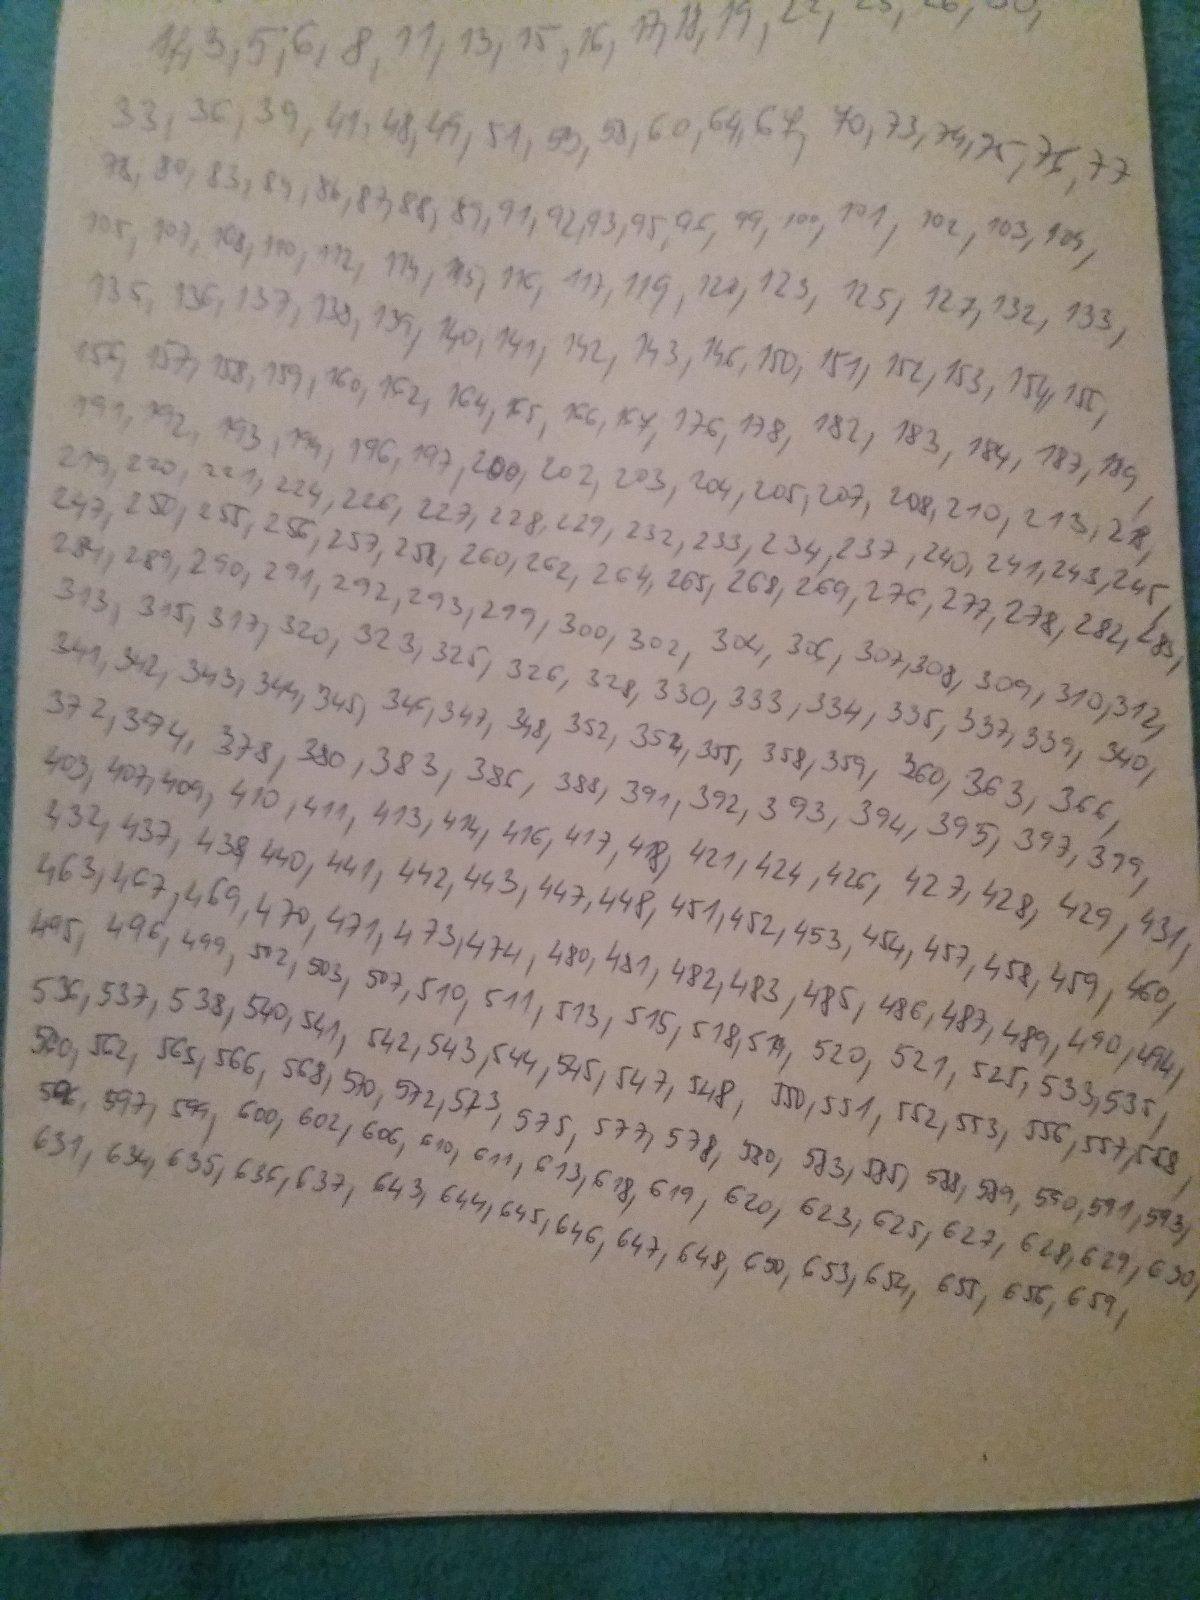 1, 3, 5, 6, 8, 11, 13, 15, 16, 17, 18, 19, 22, 25, 26, 30,
33, 36, 39, 41, 48, 49, 51, 53, 58, 60, 64, 67, 70, 73, 74, 75, 76, 77
78, 80, 83, 84, 86, 87, 88, 89, 91, 92, 93, 95, 96, 99, 100, 101, 102, 103, 104,
105, 107, 108, 110, 112, 114, 115, 116, 117, 119, 120, 123, 125, 127, 132, 133,
135, 136, 137, 138, 139, 140, 141, 142, 143, 146, 150, 151, 152, 153, 154, 155,
156, 157, 158, 159, 160, 162, 164, 165, 166, 167, 176, 178, 182, 183, 184, 187, 189,
191, 192, 193, 194, 196, 197, 200, 202, 203, 204, 205, 207, 208, 210, 213, 218,
219, 220, 221, 224, 226, 227, 228, 229, 232, 233, 234, 237, 240, 241, 243, 245,
247, 250, 255, 256, 257, 258, 260, 262, 264, 265, 268, 269, 276, 277, 278, 282, 283,
289, 290, 291, 292, 293, 299, 300, 302, 304, 306, 307, 308, 309, 310, 312,
313, 315, 317, 320, 323, 325, 326, 328, 330, 333, 334, 335, 337, 339, 340,
341, 342, 343, 344, 345, 346, 347, 348, 352, 354, 355, 358, 359, 360, 363, 366,
372, 374, 378, 380, 383, 386, 388, 391, 392, 393, 394, 395, 397, 399,
403, 407, 409, 410, 411, 413, 414, 416, 417, 418, 421, 424, 426, 427, 428, 429, 431,
432, 437, 438, 440, 441, 442, 443, 447, 448, 451, 452, 453, 454, 457, 458, 459, 460,
463, 467, 469, 470, 471, 473, 474, 480, 481, 482, 483, 485, 486, 487, 489, 490, 494,
495, 496, 499, 502, 503, 507, 510, 511, 513, 515, 518, 519, 520, 521, 525, 533, 535,
536, 537, 538, 540, 541, 542, 543, 544, 545, 547, 548, 550, 551, 552, 553, 556, 557, 558,
560, 562, 565, 566, 568, 570, 572, 573, 575, 577, 578, 580, 583, 585, 588, 589, 590, 591, 593,
596, 597, 599, 600, 602, 606, 610, 611, 613, 618, 619, 620, 623, 625, 627, 628, 629, 630,
631, 634, 635, 636, 637, 643, 644, 645, 646, 647, 648, 650, 653, 654, 655, 656, 659,